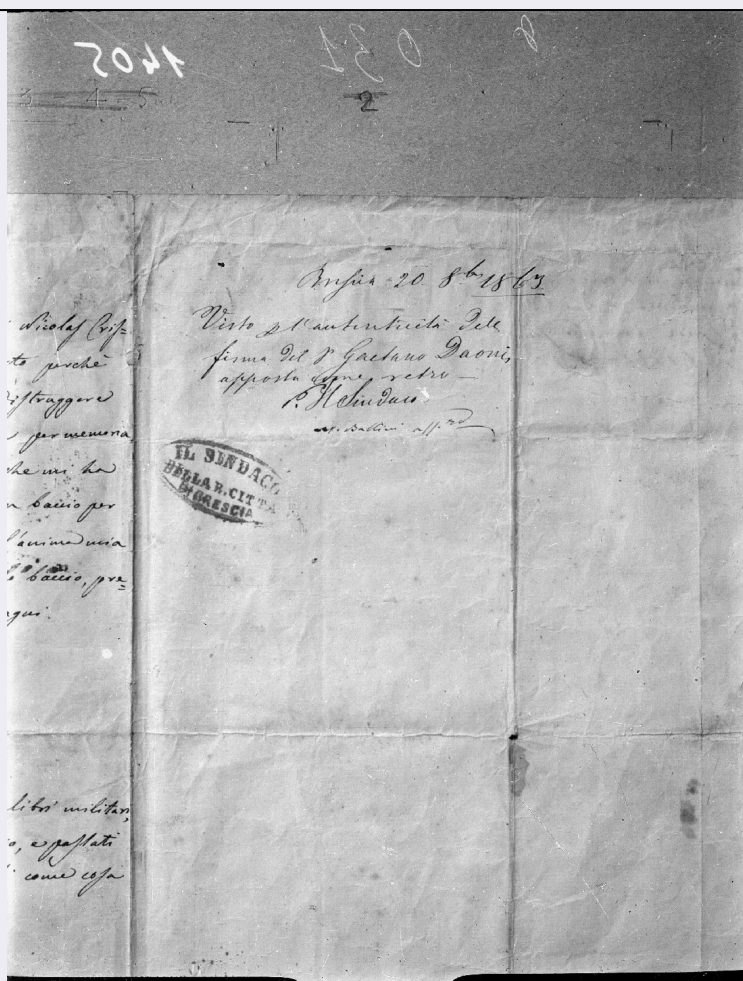 1405
031
8
3 4 5
2
Nicolaf Crif=
to perchè
diftruggere
per memoria
che mi ha
n baccio per
l'anima mia
baccio, pre=
qui.
libri militari,
o, e paffati
come cofa
Brefcia 20 8bre 1863
Visto p l'autenticità dell
firma del Sr Gaetano Daoni,
apposta come retro
P. Il Sindaco
Ballini assre
IL SINDACO
DELLA R. CITTÀ
DI BRESCIA